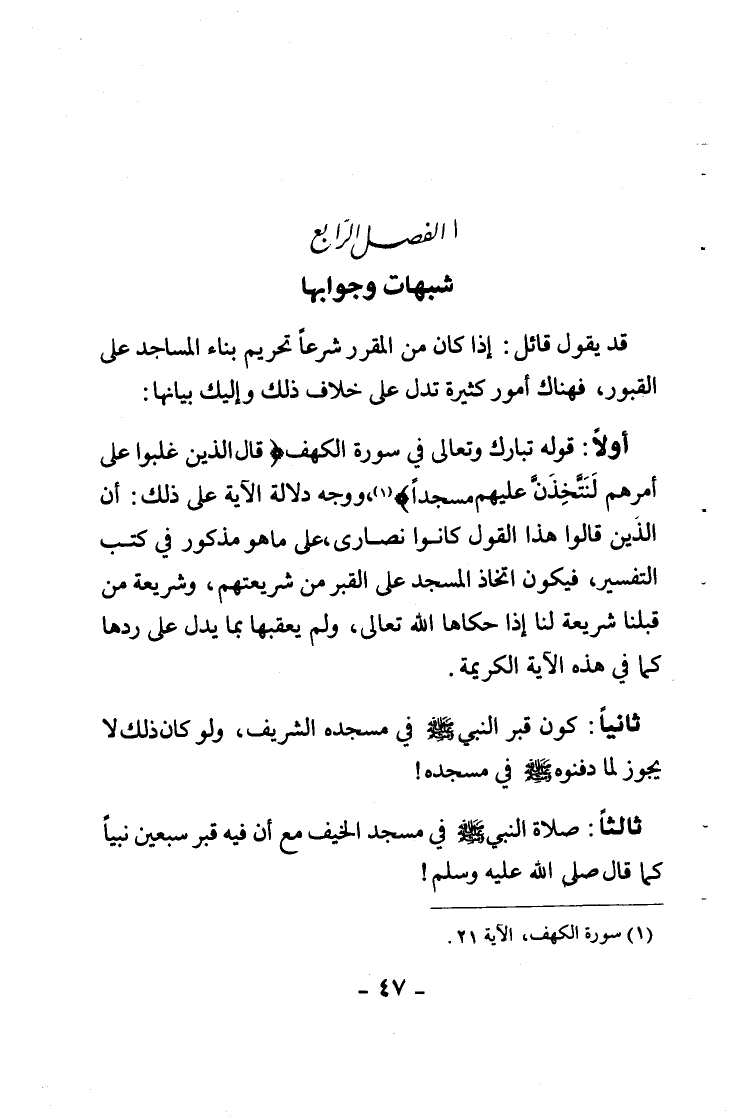 الفصل الرَّابع
شبهات وجوابها
قد يقول قائل: إذا كان من المقرر شرعاً تحريم بناء المساجد على
القبور، فهناك أمور كثيرة تدل على خلاف ذلك وإليك بيانها:
أولاً: قوله تبارك وتعالى في سورة الكهف﴿ قال الذين غلبوا على
أمرهم لَنَتَّخِذَنَّ عليهم مسجداً﴾(١)،ووجه دلالة الآية على ذلك: أن
الذَين قالوا هذا القول كانوا نصارى،على ماهو مذكور في كتب
التفسير، فيكون اتخاذ المسجد على القبر من شريعتهم، وشريعة من
قبلنا شريعة لنا إذا حكاها الله تعالى، ولم يعقبها بما يدل على ردها
كما في هذه الآية الكريمة.
ثانياً: كون قبر النبي ﷺ في مسجده الشريف، ولو كان ذلك لا
يجوز لما دفنوه ﷺ في مسجده!
ثالثاً: صلاة النبي ﷺ في مسجد الخيف مع أن فيه قبر سبعين نبياً
كما قال صلى الله عليه وسلم!
(١) سورة الكهف، الآية ٢١.
- ٤٧ -